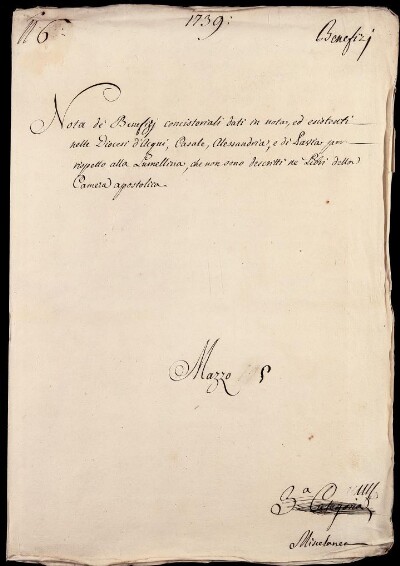 N 6.
1739:
Benefizj
Nota de Benefizj concistoriali dati in nota, ed esistenti
nelle Diocesi d'Acqui, Casale, Alessandria, e di Pavia per
rispetto alla Lumellina, che non sono descritti ne Libri della
Camera apostolica.
Mazzo
3.a Categoria
Miscelanea